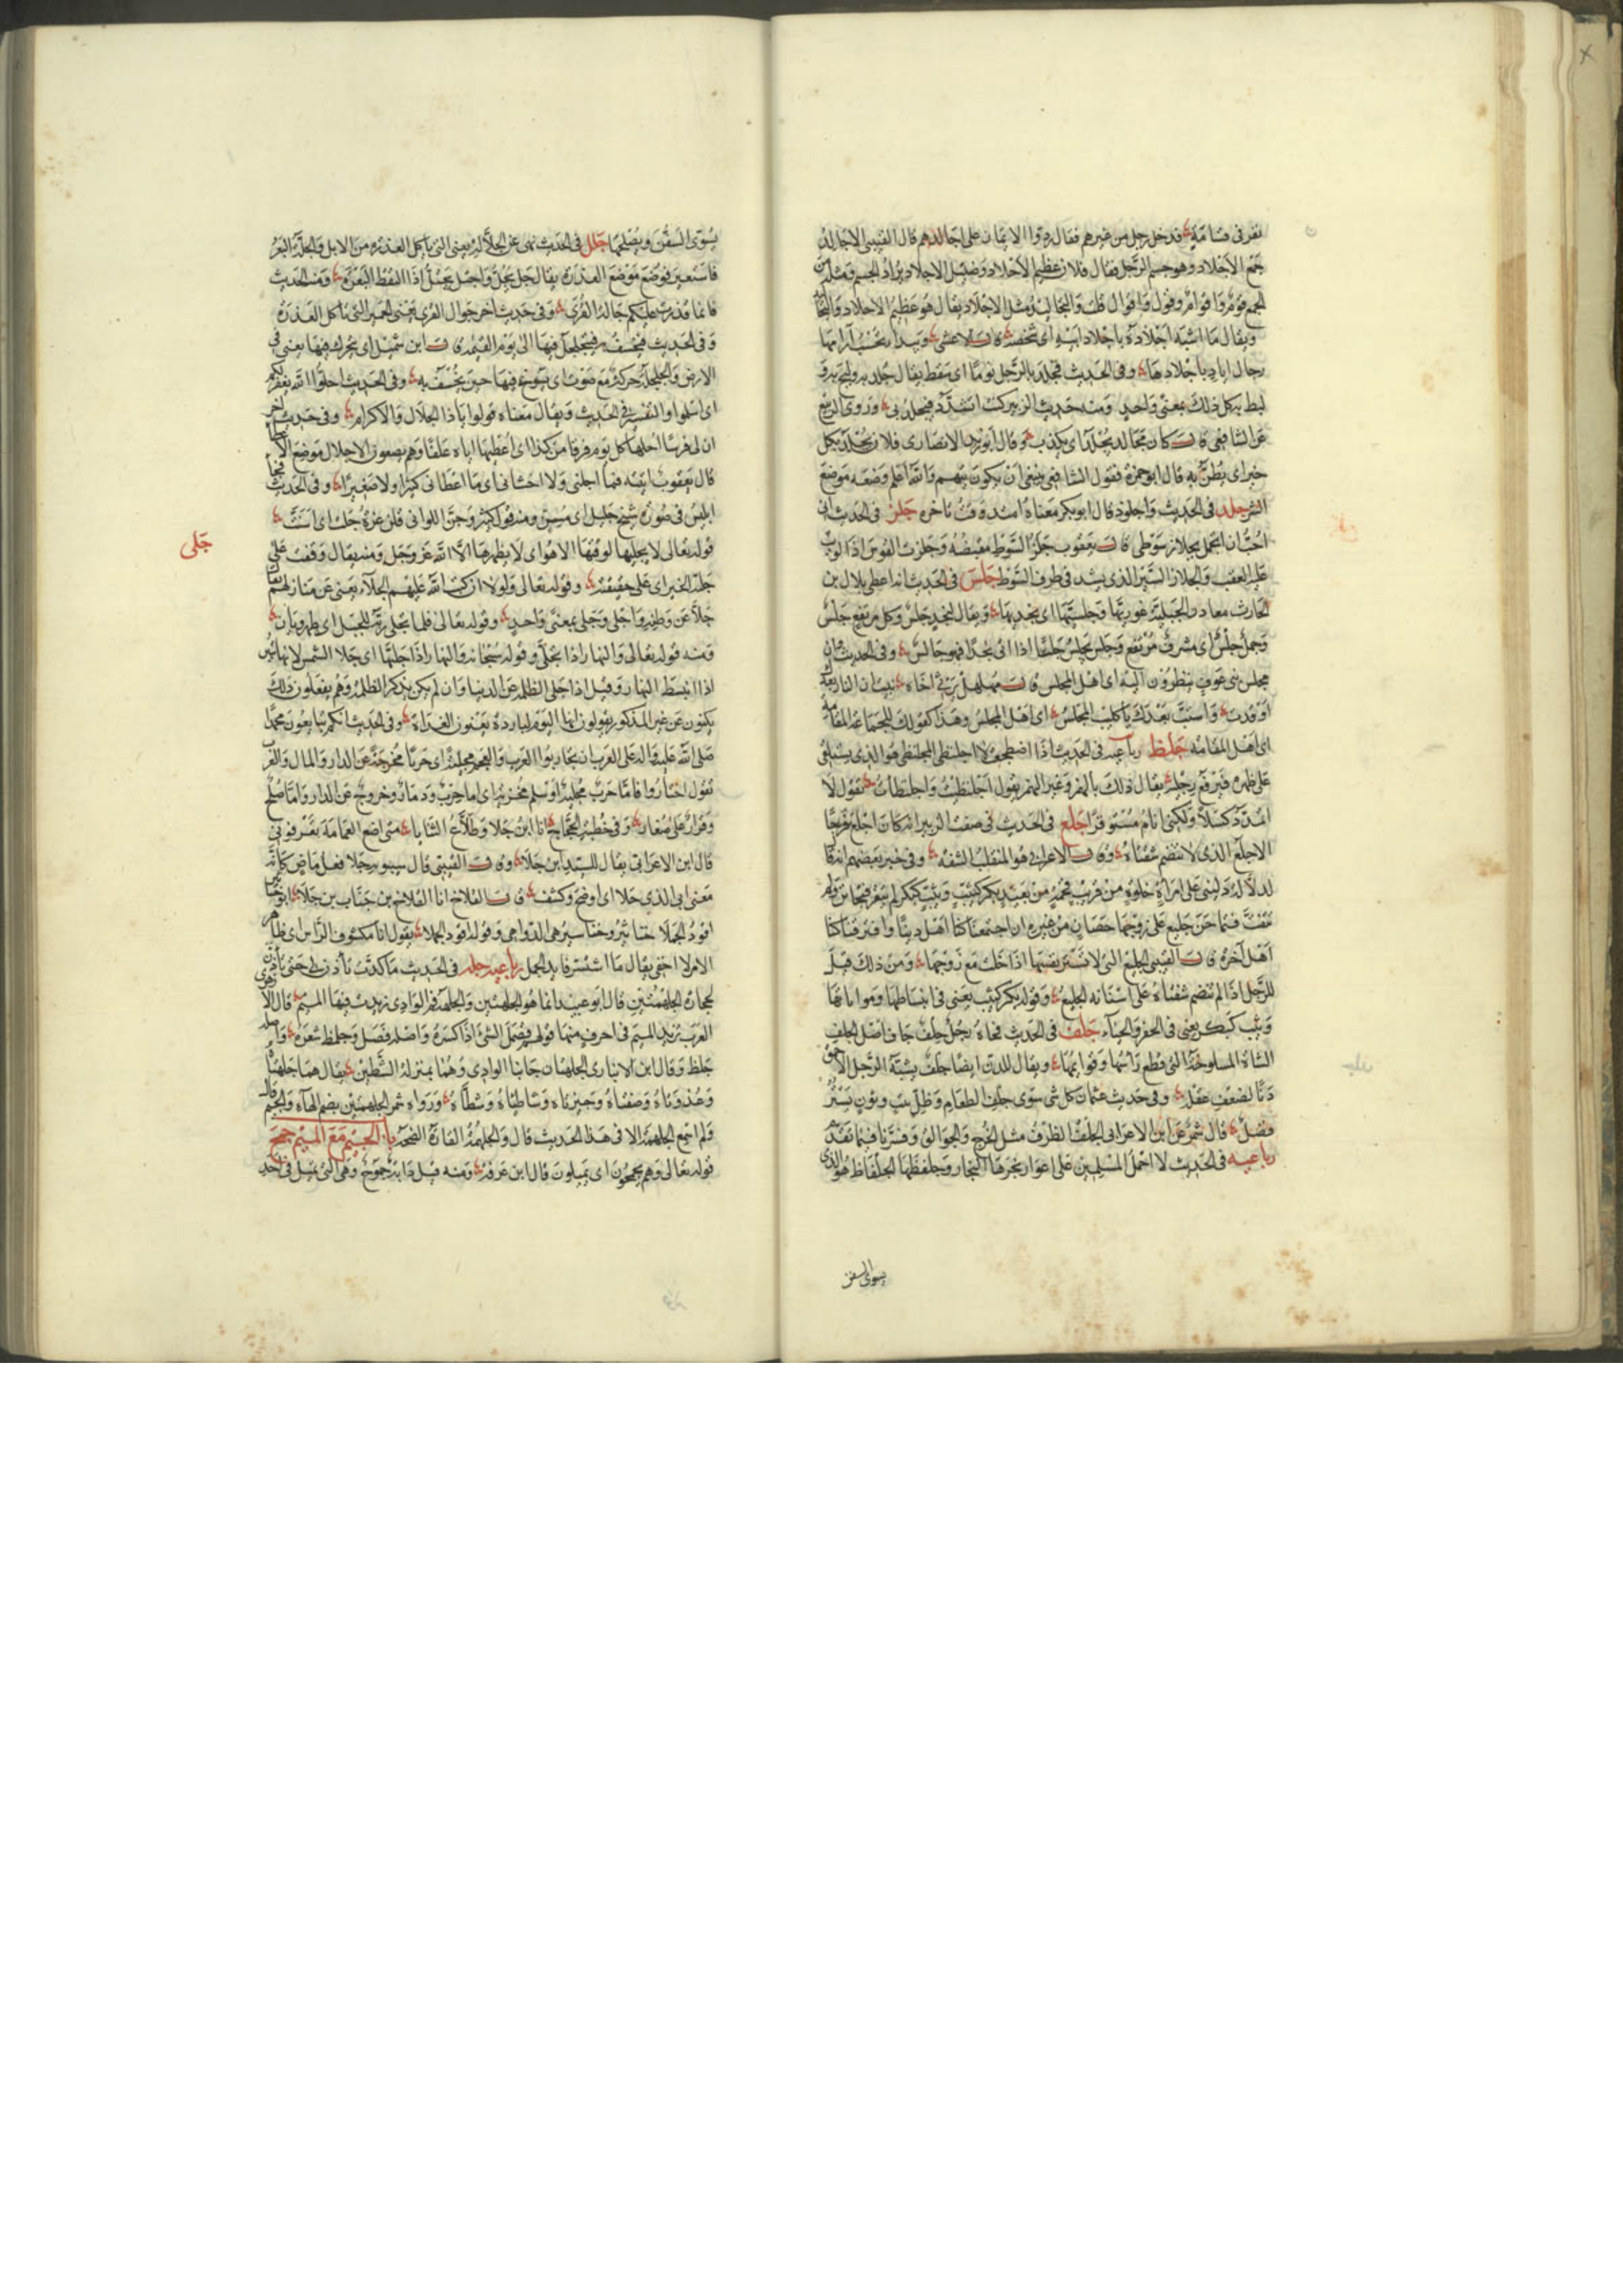 نفر فى قسامة فدخل رجل من غيرهم فقال ردوا الايمان على اجالدهم قال القتيبى الاجالد
جمع الاجلاد وهو جسم الرجل يقال فلان عظيم الاجلاد وضئيل الاجلاد يراد الجسم ومثله من
الجمع قوم واقوام وقول واقوال قلت والتجاليد مثل الاجلاد يقال هو عظيم الاجلاد والتجاليد
ويقال ما اشبه اجلاده باجلاد ابيه اى شخصه قال الاعشى وبيداء تحسب آرامها
رجال اياد باجلادها وفى الحديث فجلد بالرجل نوما اى سقط يقال جلد به ولبج به
لبط به كل ذلك بمعنى واحد ومنه حديث الزبير كنت اتشدد فيجلد بى وروى الربيع
عن الشافعى قال كان مجالد يجلد اى يكذب وقال ابو زيد الانصارى فلان يجلد بكل
خير اى يظن به قال ابو حمزة فقول الشافعى ينبغى ان يكون يتهم والله اعلم وضعه موضع
الشر جلذ فى الحديث واجلوذ قال ابو بكر معناه امتد وقت تاخره جلز فى الحديث انى
احب ان اتجمل بجلاز سوطى قال يعقوب جلز السوط مقبضه وجلزت القوس اذا لويت
عليه العقب والجلاز السير الذى يشد فى طرف السوط جلس فى الحديث انه اعطى بلال بن
الحارث معادن الجبلية غوريها وجلسيها اى نجديها ويقال لنجد جلس وكل مرتفع جلس
وجمل جلس اى مشرف مرتفع وجلس يجلس جلسا اذا اتى نجدا فهو جالس وفى الحديث وان
مجلس بنى عوف ينظرون اليه اى اهل المجلس قال مهلهل يرثى اخاه نبئت ان النار بعدك
اوقدت واستب بعدك يا كليب المجلس اى اهل المجلس وهذا كقولك للجماعة المقامة
اى اهل المقامة جلظ رباعيه فى الحديث اذا اضطجعت لا اجلنظى المجلنظى هو الذى يستلقى
على ظهره فيرفع رجليه يقال ذلك بالهمز وغير الهمز يقول اجلنظيت واجلنظأت يقول لا
اتمدد كسلا ولكنى انام مستوفزا جلع فى الحديث فى صفة الزبير انه كان اجلع فرجا
الاجلع الذى لا تنضم شفتاه وقال الاعرابى هو المنقلب الشفة وفى خبر بعضهم انه قال
اهل آخره قال القتيبى الجليع التى لا تستر نفسها اذا خلت مع زوجها ومن ذلك قيل
للرجل اذا لم تنضم شفتاه على اسنانه اجلع
جلف فى الحديث فجاءه رجل جلف جاف اصل الجلف
الشاة المسلوخة التى قطع راسها وقوائمها ويقال للدن ايضا جلف يشبه الرجل الاحمق
دنا لضعف عقله وفى حديث عثمان كل شى سوى جلف الطعام وظل بيت وثوب يستر
فضل قال شمر عن ابن الاعرابى الجلف الظرف مثل الخرج والجوالق وفسرناه فيما تقدم
رباعيه فى الحديث لا احمل المسلمين على اعواد نجرها النجار وجلفظها الجلفاظ هو الذى
يسوى السفن
يسوى السفن ويصلحها جلل فى الحديث نهى عن الجلالة يعنى التى تاكل العذرة من الابل والجلة البعر
فاستعير فوضع موضع العذرة يقال جل يجل واجتل يجتل اذا التقط البعرة ومنه الحديث
فانما قذرت عليكم جالة القرى وفى حديث آخر جوال القرى يعنى الحمير التى تاكل العذرة
وفى الحديث فيخسف به فيتجلجل فيها الى يوم القيمة قال ابن شميل اى يتحرك فيها يعنى فى
الارض والجلجلة حركة مع صوت اى يسوخ فيها حين يخسف به وفى الحديث اجلوا الله يغفر لكم
اى اسلموا والتفسير فى الحديث ويقال معناه قولوا يا ذا الجلال والاكرام وفى حديث آخر
ان لى فرسا اجلها كل يوم فرقا من كذا اى اعطيها اياه علفا وهم يضعون الاجلال موضع الاعطاء
قال يعقوب اتيته فما اجلنى ولا احشانى اى ما اعطانى كثيرا ولا صغيرا وفى الحديث فجاء
ابليس فى صورة شيخ جليل اى مسن ومنه قول كثير وجن اللواتى قلن عزة جلت اى اسنت
جلى
قوله تعالى لا يجليها لوقتها الا هو اى لا يظهرها الا الله عز وجل ومنه يقال وقفت على
جلية الخبر اى على حقيقته وقوله تعالى ولولا ان كتب الله عليهم الجلاء يعنى عن منازلهم يقال
جلا عن وطنه واجلى وجلى بمعنى واحد وقوله تعالى فلما تجلى ربه للجبل اى ظهر وبان
ومنه قوله تعالى والنهار اذا تجلى وقوله سبحانه والنهار اذا جلاها اى جلا الشمس لانها تبين
اذا انبسط النهار وقيل اذا جلى الظلمة عن الدنيا وان لم يكن يذكر الظلمة وهم يفعلون ذلك
يكنون عن غير المذكور يقولون انها اليوم لباردة يعنون الغداة وفى الحديث انكم تبايعون محمدا
صلى الله عليه واله على العرب ان تحاربوا العرب والعجم مجلية اى حربا مخرجة عن الدار والمال والعرب
تقول اختاروا فاما حرب مجلية او سلم مخزية اى اما حرب ودمار وخروج عن الدار واما صلح
وقرار على صغار وفى خطبة الحجاج انا ابن جلا وطلاع الثنايا متى اضع العمامة تعرفونى
قال ابن الاعرابى يقال للسيد ابن جلا وقال القتيبى قال سيبويه جلا فعل ماض كانه
معنى ابى الذى جلا اى اوضح وكشف قال القلاخ انا القلاخ بن جناب بن جلا ابو خناثير
اقود الجملا خناثير وخناسير هى الدواهى وقوله اقود الجملا يقول انا مكشوف الراس اى ظاهر
الامر لا اخفى يقال ما استتر قائد الجمل رباعيه جله فى الحديث ما كدت تاذن لى حتى تاذن
لحجارة الجلهمتين قال ابو عبيد انما هو الجلهتين والجلهة فم الوادى زيدت فيها الميم قال الازهرى
العرب تزيد الميم فى احرف منها قولهم قصمل الشى اذا كسره واصله قصل وجلمط شعره واصله
جلط وقال ابن الانبارى الجلهتان جانبا الوادى وهما بمنزلة الشطين يقال هما جلهتاه
وعدوتاه وضفتاه وحيزتاه وشاطئاه وشطاه ورواه شمر الجلهمتين بضم الهاء والجيم قال
ولم اسمع الجلهمة الا فى هذا الحديث قال والجلهمة القارة الضخمة باب الجيم مع الميم جمح
قوله تعالى وهم يجمحون اى يميلون قال ابن عرفة ومنه قيل دابة جموح وهى التى تميل فى احد